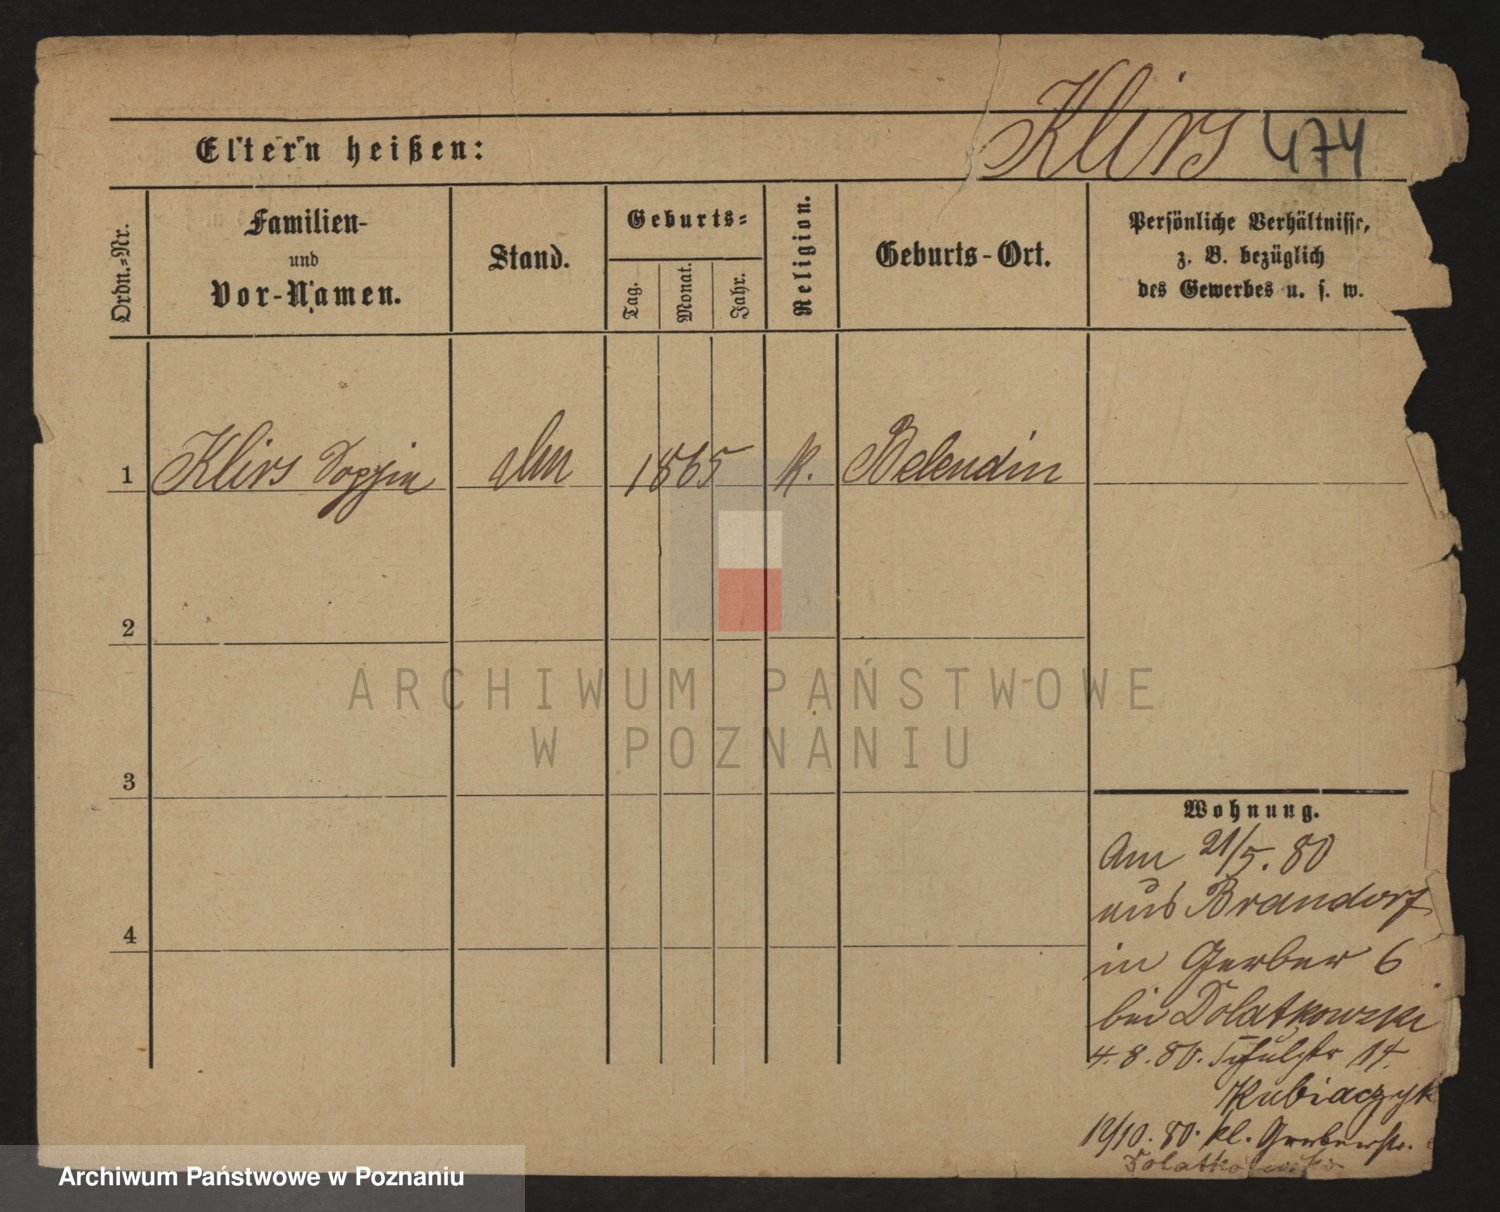 Klirs 474
Eltern heißen:
Ordn.-Nr.
Familien-
und
Vor-Namen.
Stand.
Geburts-
Tag.
Monat.
Jahr.
Religion.
Geburts-Ort.
Persönliche Verhältnisse,
z. B. bezüglich
des Gewerbes u. s. w.
1 Klirs Sophie 1865 k. Belendin
2
3
4
Wohnung.
Am 21/5. 80
aus Brandorf
in Gerber 6
bei Dolatkowski
4. 8. 80. Schulstr 14.
Kubiaczyk
19/10. 80. kl. Gerberstr.
Dolatkowski
ARCHIWUM PAŃSTWOWE
W POZNANIU
Archiwum Państwowe w Poznaniu